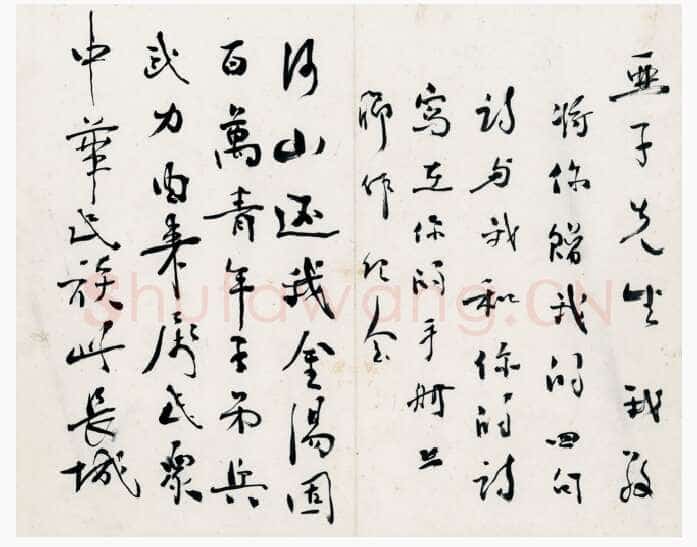 亞子先生我
將你贈我的四句
詩与我和你的詩
寫在你的手册上
聊作紀念
河山還我金湯固
百萬青年子弟兵
武力由来屬民眾
中華民族此長城
Shufawang.CN